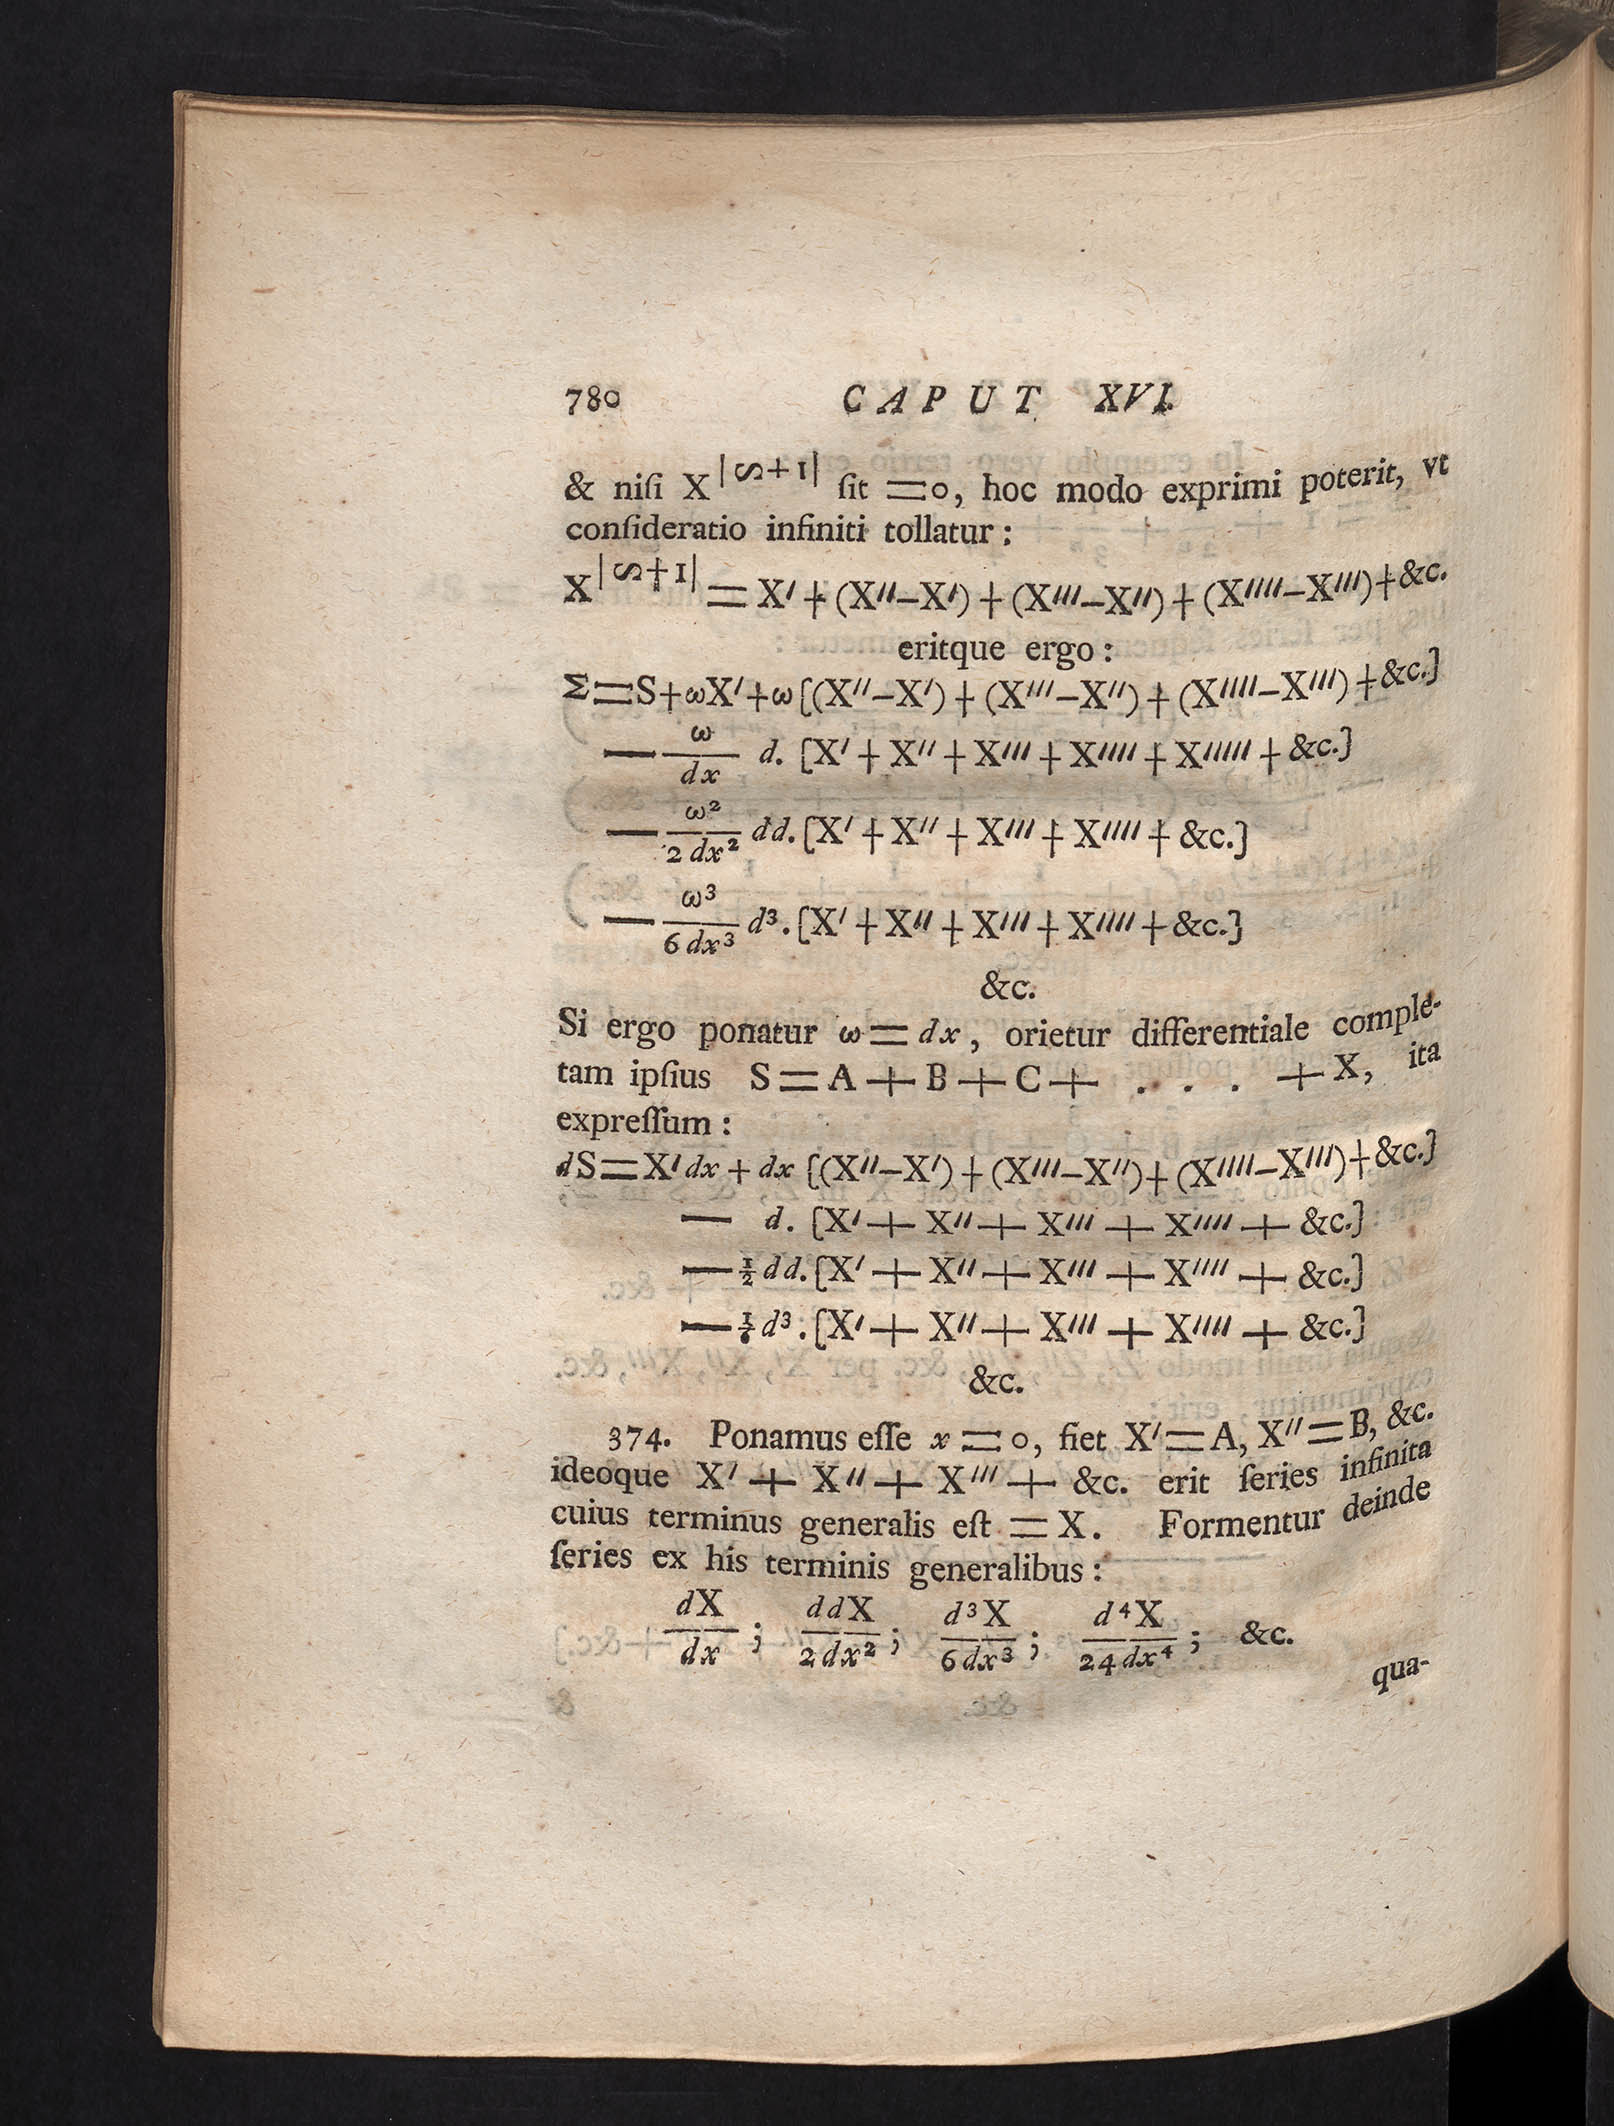 780 CAPUT XVI.
& niſi X|∽+1| ſit =0, hoc modo exprimi poterit, vt
conſideratio infiniti tollatur:
X|∽+1| = X′ + (X′′−X′) + (X′′′−X′′) + (X′′′′−X′′′) + &c.
eritque ergo:
Σ=S+ωX′+ω[(X′′−X′) + (X′′′−X′′) + (X′′′′−X′′′) + &c.]
− ω/dx d. [X′ + X′′ + X′′′ + X′′′′ + X′′′′′ + &c.]
− ω²/2dx² dd. [X′ + X′′ + X′′′ + X′′′′ + &c.]
− ω³/6dx³ d³. [X′ + X′′ + X′′′ + X′′′′ + &c.]
&c.
Si ergo ponatur ω = dx, orietur differentiale comple-
tam ipſius S = A + B + C + . . . + X, ita
expreſſum:
dS = X′dx + dx [(X′′−X′) + (X′′′−X′′) + (X′′′′−X′′′) + &c.]
− d. [X′ + X′′ + X′′′ + X′′′′ + &c.]
− ½ dd. [X′ + X′′ + X′′′ + X′′′′ + &c.]
− ⅙ d³. [X′ + X′′ + X′′′ + X′′′′ + &c.]
&c.
374. Ponamus eſſe x = 0, fiet X′ = A, X′′ = B, &c.
ideoque X′ + X′′ + X′′′ + &c. erit ſeries infinita
cuius terminus generalis eſt = X. Formentur deinde
ſeries ex his terminis generalibus:
dX/dx ; ddX/2dx² ; d³X/6dx³ ; d⁴X/24dx⁴ ; &c.
qua-